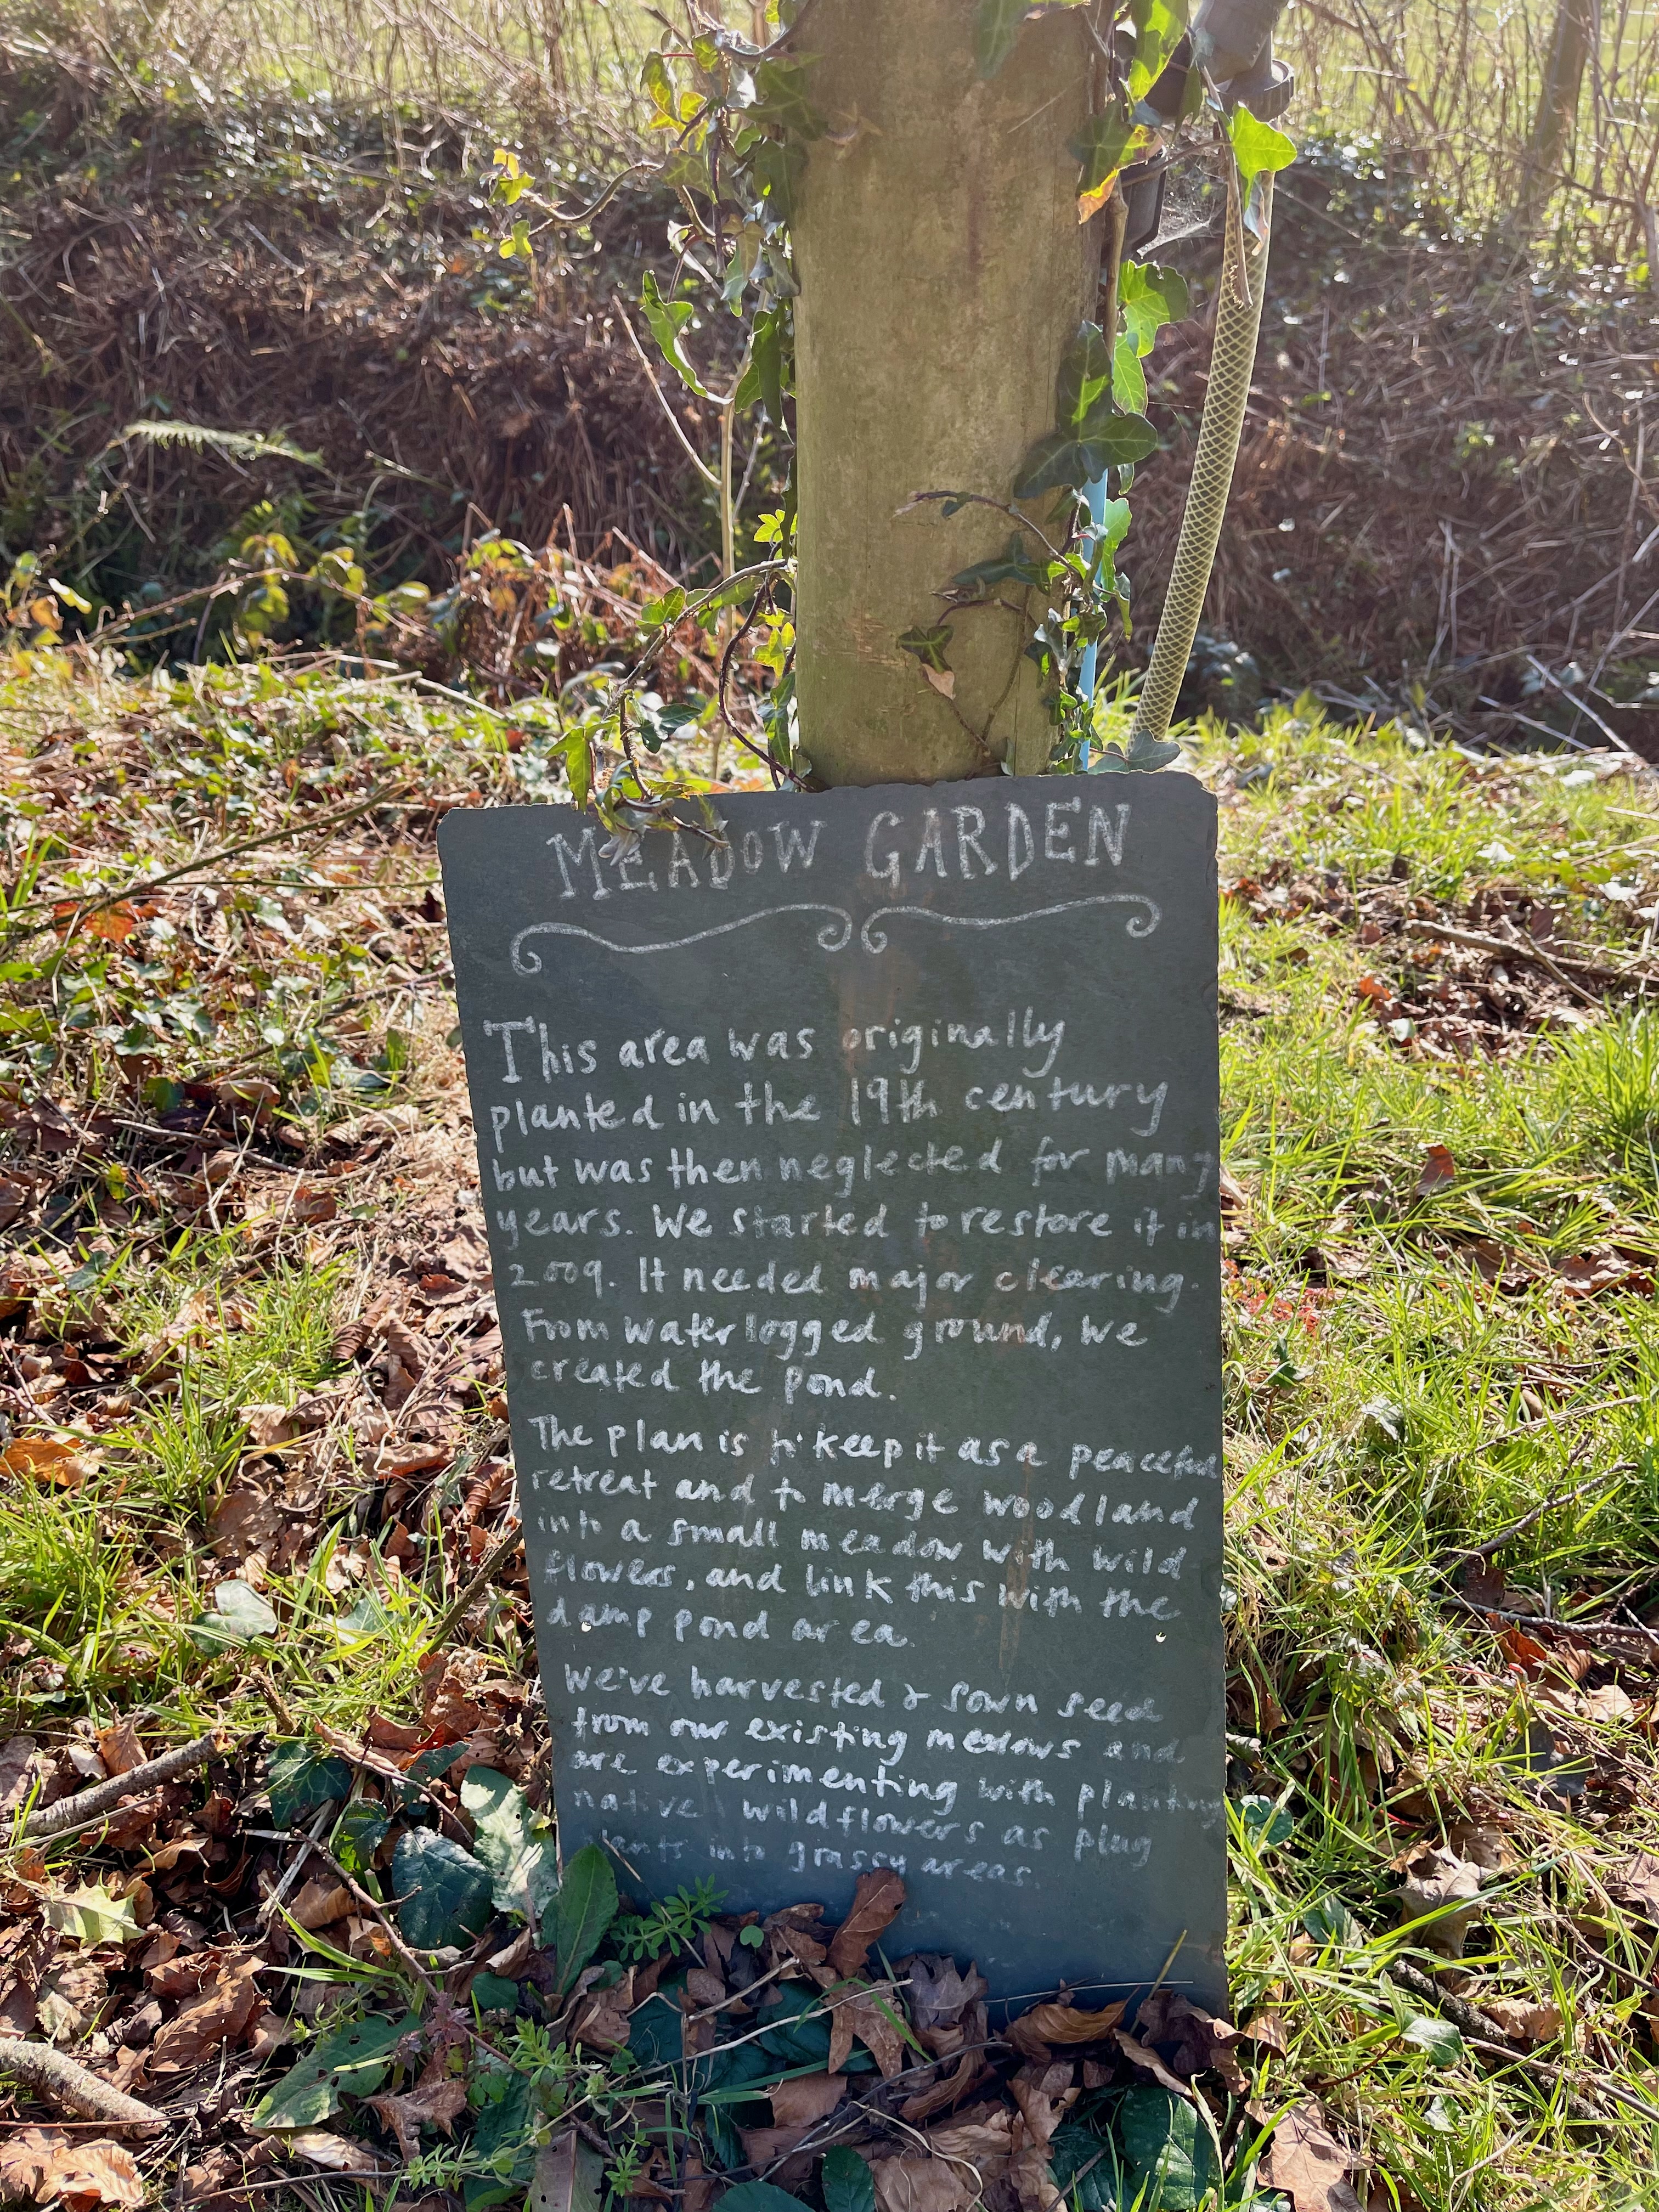 MEADOW GARDEN
This area was originally
planted in the 19th century
but was then neglected for many
years. We started to restore it in
2009. It needed major clearing.
From waterlogged ground, we
created the pond.
The plan is to keep it as a peaceful
retreat and to merge woodland
into a small meadow with wild
flowers, and link this with the
damp pond area.
We've harvested & sown seed
from our existing meadows and
are experimenting with planting
native wildflowers as plug
plants into grassy areas.